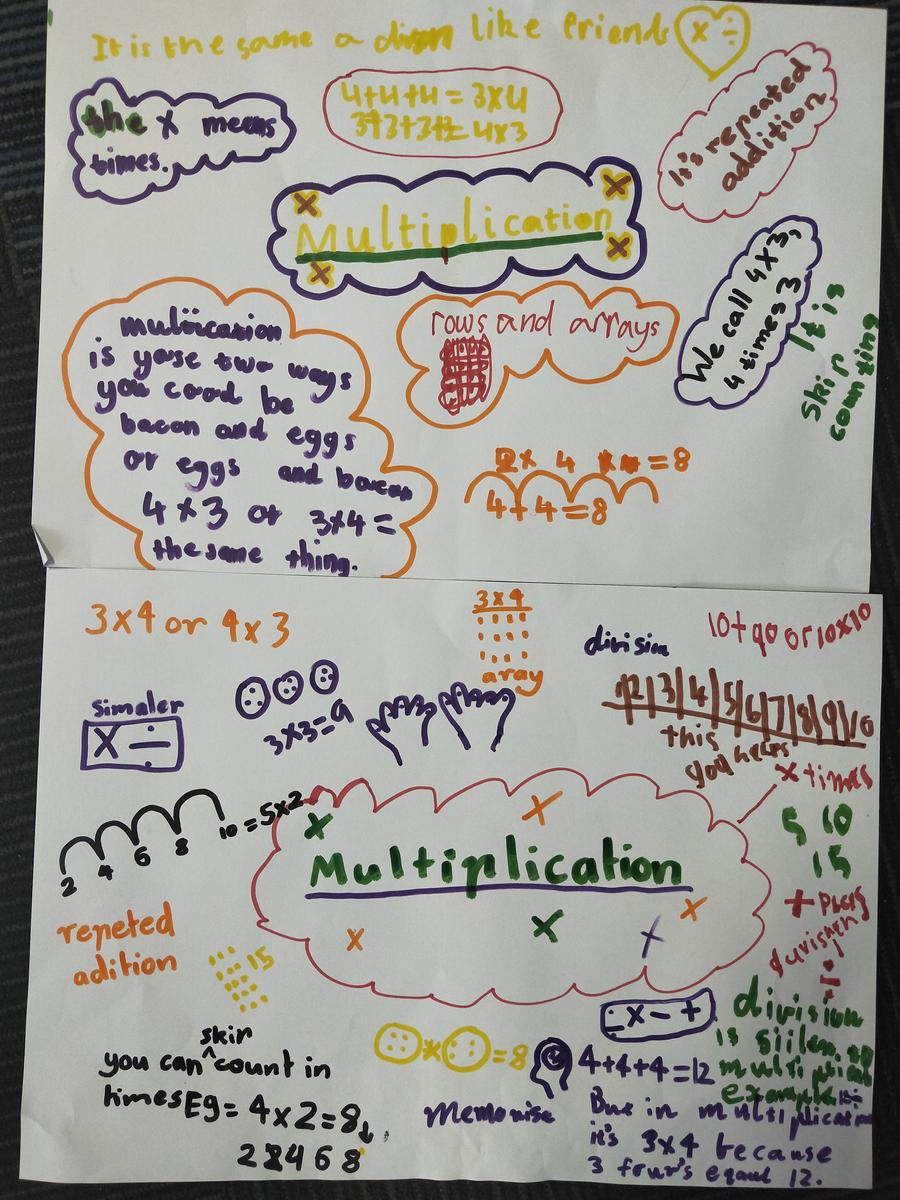 It is the same a like friends × ÷
the x means
times.
4+4+4 = 3x4
3+3+3+3= 4x3
It's repeated
addition
Multiplication
We call 4x3,
4 times 3
It is
skip
counting
rows and arrays
is yose two ways
you coud be
bacon and eggs
or eggs and bacon
4 x 3 or 3x4 =
the same thing.
2x 4 = 8
4+4=8
3x4 or 4x3
3x4
aray
division
10+90 or 10x10
simaler
x ÷
3x3=9
1 2 3 4 5 6 7 8 9 10
this
helps
you
x times
2 4 6 8 10 = 5x2
Multiplication
5 10
15
+ plus
÷
repeted
adition
15
skip
you can ^ count in
times Eg= 4x2=8
2 4 6 8
x = 8
Memorise
÷ x - +
4+4+4=12
But in multiplication
it's 3x4 because
3 four's equal 12.
division
is to
example